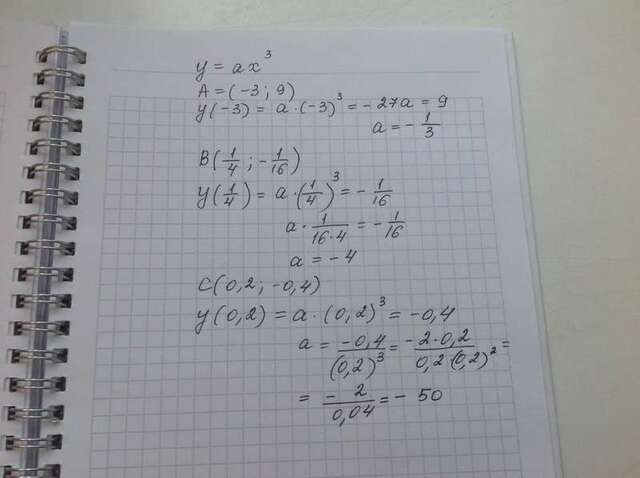 y = ax³
A = (-3; 9)
y(-3) = a·(-3)³ = -27a = 9
a = -1/3
B(1/4; -1/16)
y(1/4) = a·(1/4)³ = -1/16
a·1/(16·4) = -1/16
a = -4
C(0,2; -0,4)
y(0,2) = a·(0,2)³ = -0,4
a = -0,4/(0,2)³ = -2·0,2/(0,2·(0,2)²) =
= -2/0,04 = -50